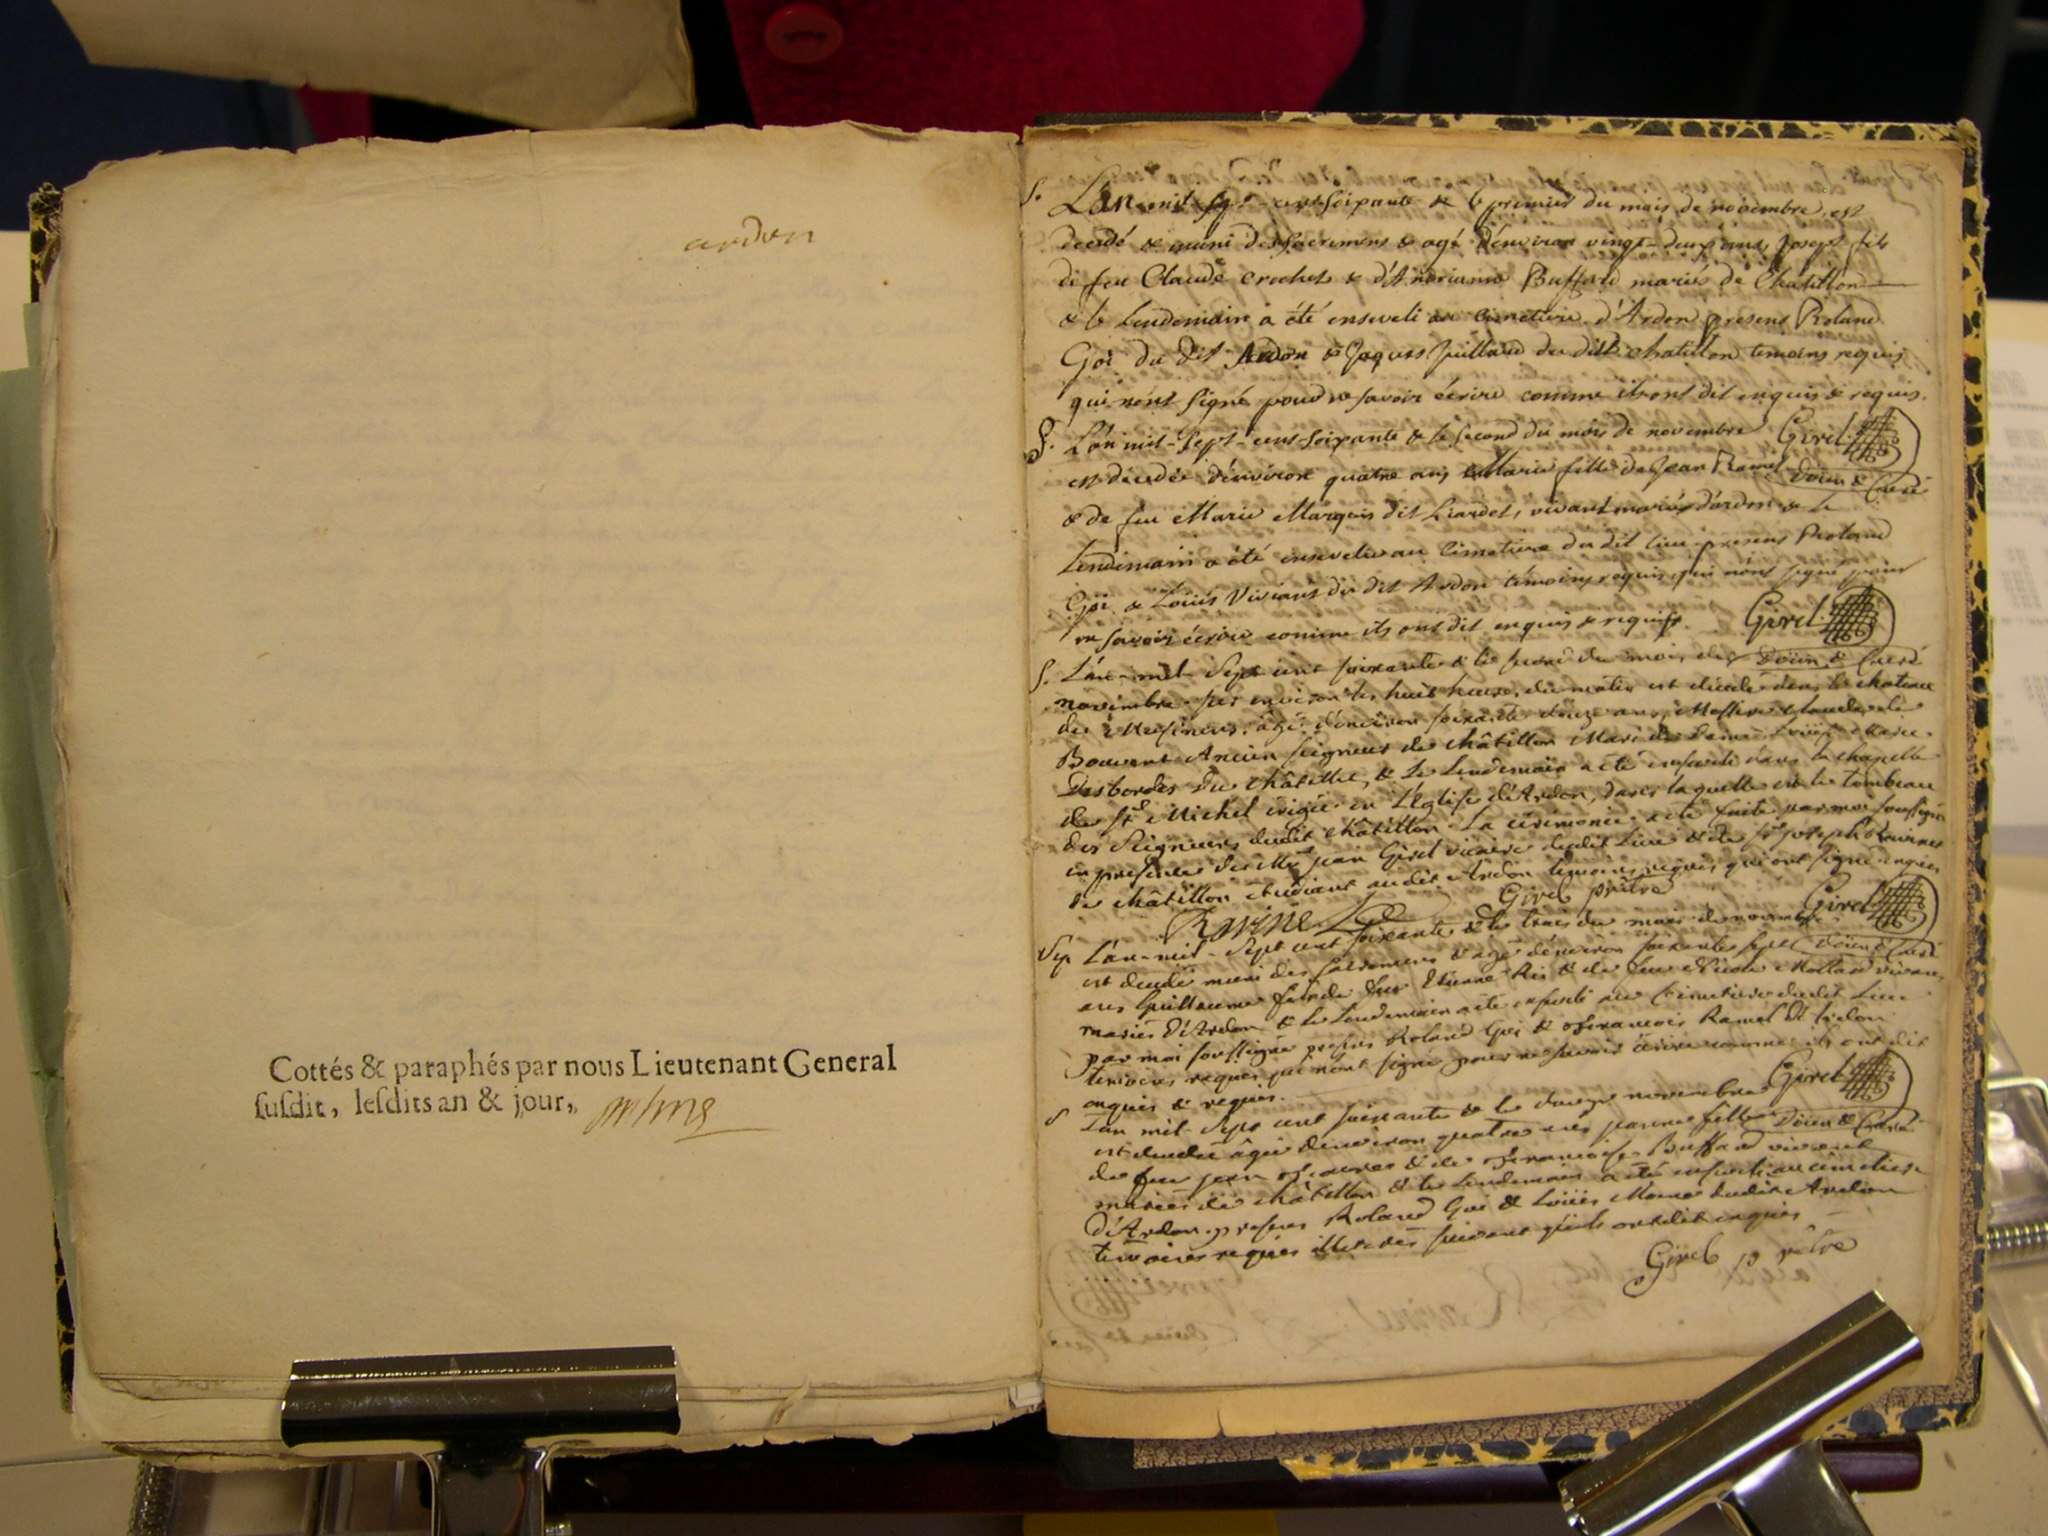 ardon
Cottés & paraphés par nous Lieutenant General
susdit, lesdits an & jour,
S. L'an mil sept cens soixante & le premier du mois de novembre, est
decedé & muni des sacremens & agé d'environ vingt-deux ans, Joseph fils
de feu Claude Crochet & d'Andrianne Buffard mariés de Châtillon
& le lendemain a été enseveli au cimetiere d'Ardon presens Roland
Goi du dit Ardon & Jaques Juillard du dit Chatillon temoins requis
qui n'ont signé pour ne savoir écrire comme ils ont dit enquis & requis.
Girel
S. L'an mil-sept-cens soixante & le second du mois de novembre
Doien & Curé
est decedée d'environ quatre ans Marie fille de Jean Ramel
& de feu Marie Marquis dit Liardet, vivant mariés d'ardon & le
lendemain a été ensevelie au cimetiere du dit lieu presens Roland
Goi & Loüis Viviant du dit Ardon témoins requis, qui n'ont signé pour
ne savoir écrire comme ils ont dit enquis & requis.
Girel
Doïen & Curé
S. L'an-mil-sept cent soixante & le second du mois de
novembre sur environ les huit heures du matin est decedé dans le chateau
de agé d'environ soixante douze ans, Messire Claude de
Bouvent Ancien seigneur de Châtillon Mari de Dame Loüise Marie
Desbordes du Châtellet, & le lendemain a été enseveli dans la chapelle
de St Michel erigée en l'Eglise d'Ardon, dans laquelle est le tombeau
des Seigneurs dudit Châtillon. La ceremonie a été faite par moi soussigné
en presence de Mre Jean Girel vicaire dudit Lieu & de Sr Joseph Ravinet
de Châtillon étudiant audit Ardon temoins requis, qui ont signé enquis
Ravinet Girel prêtre Girel
Doïen & Curé
Sep. L'an-mil-sept cent soixante & le trois du mois de novembre
est decedé muni des sacremens & agé d'environ soixante sept
ans Guillaume fils de feu Etienne Rey & de feue Nicole Molland vivans
mariés d'Ardon & le lendemain a été enseveli au cimetiere dudit Lieu
par moi soussigné presens Roland Goi & François Ramel d'Ardon
temoins requis qui n'ont signé pour ne savoir écrire comme ils ont dit
enquis & requis.
Girel
Doïen & Curé
S L'an mil sept cent soixante & le douze novembre
est decedée agée d'environ quatre ans Jeanne fille
de feu Jean & de Françoise Buffard vivant
mariés de Châtillon & le lendemain a été enseveli au cimetiere
d'Ardon presens Roland Goi & Loüis dudit Ardon
temoins requis illiterés suivant qu'ils ont dit enquis
Girel prêtre